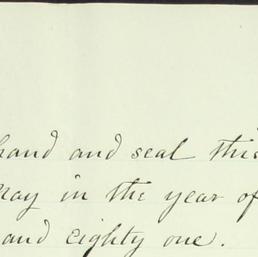 hand and seal this
May in the year of
and eighty one.